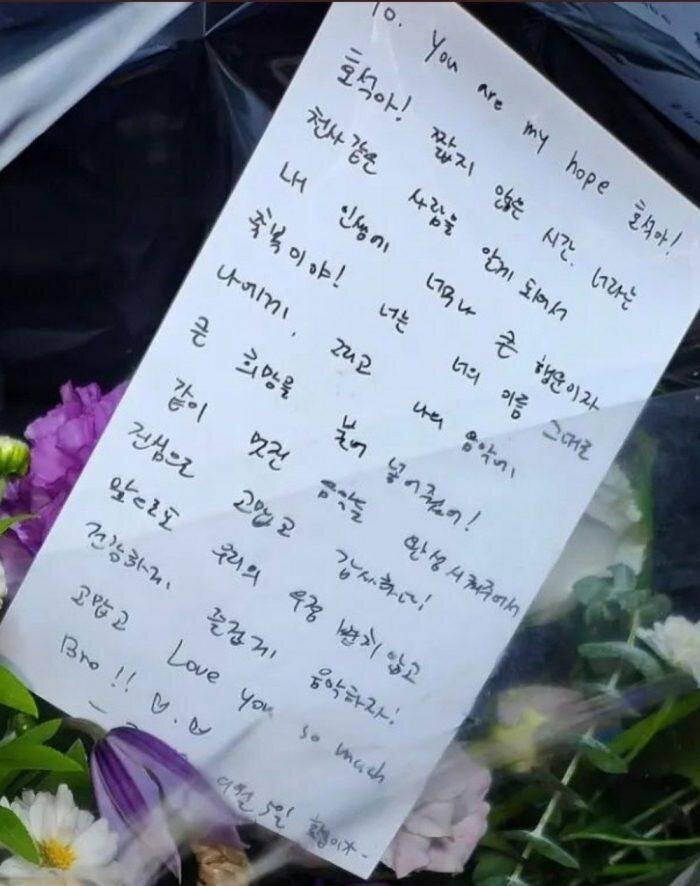 To. You are my hope 호석아!
호석아! 짧지 않은 시간. 너라는
천사같은 사람을 알게 되어서
내 인생에 너무나 큰 행운이자
축복이야! 너는 너의 이름 그대로
나에게, 그리고 나의 음악에,
큰 희망을 불어 넣어줬어!
같이 멋진 음악을 완성시켜주어서
진심으로 고맙고 감사하다!
앞으로도 우리의 우정 변치 않고
건강하게, 즐겁게, 음악하자!
고맙고 Love you so much
Bro!!
5일 형이자-